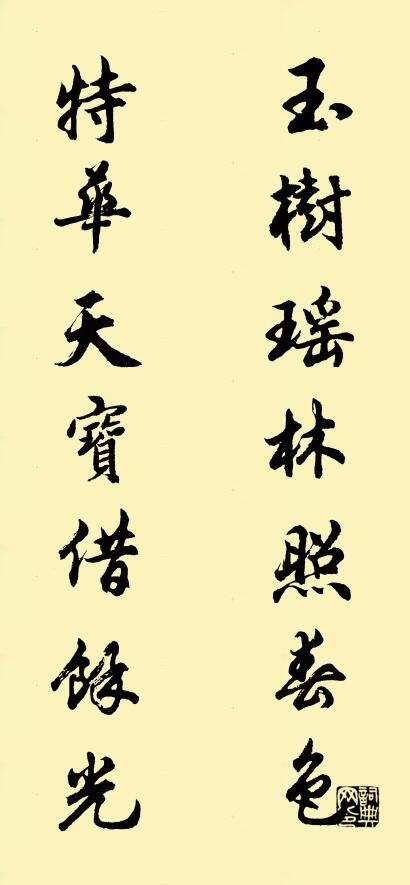 玉樹瑶林照春色
特華天寶借餘光
詞典网